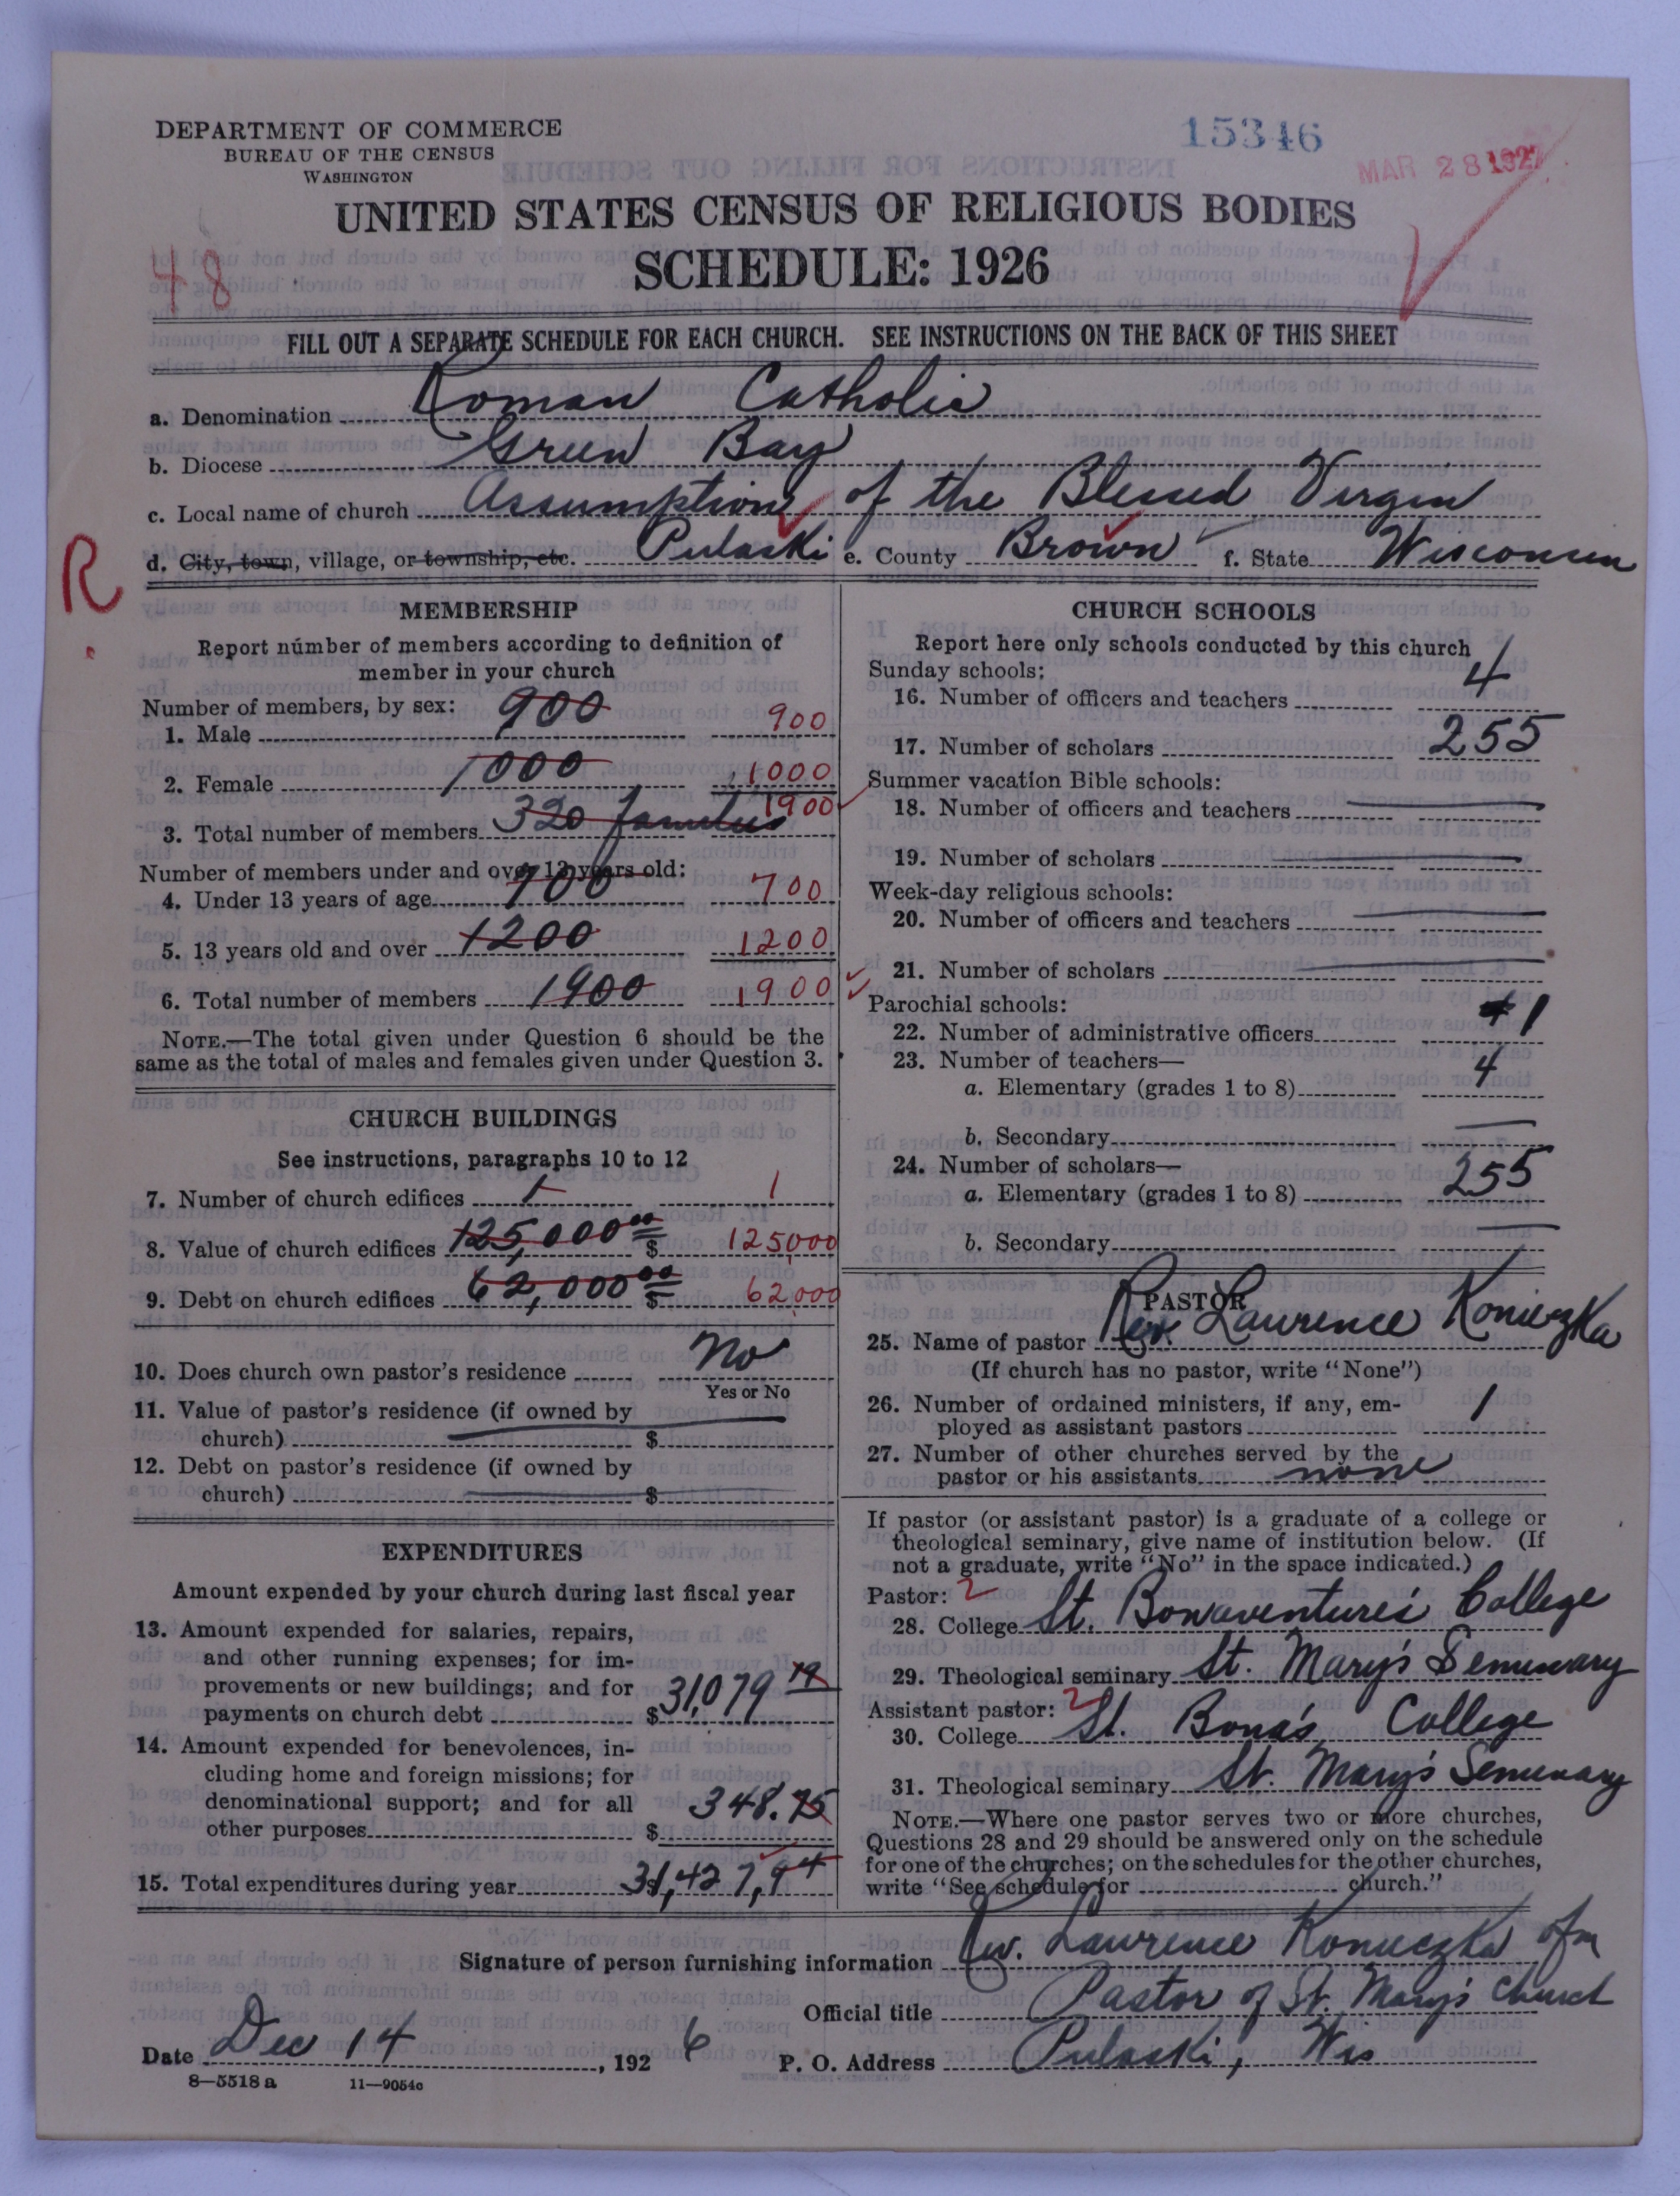 DEPARTMENT OF COMMERCE
BUREAU OF THE CENSUS
WASHINGTON
15346
MAR 28 1927
UNITED STATES CENSUS OF RELIGIOUS BODIES
SCHEDULE: 1926
48
FILL OUT A SEPARATE SCHEDULE FOR EACH CHURCH. SEE INSTRUCTIONS ON THE BACK OF THIS SHEET
a. Denomination Roman Catholic
b. Diocese Green Bay
c. Local name of church Assumption of the Blessed Virgin
d. City, town, village, or township, etc. Pulaski e. County Brown f. State Wisconsin
R.
MEMBERSHIP
Report number of members according to definition of
member in your church
Number of members, by sex:
1. Male 900 900
2. Female 1000 1000
3. Total number of members 320 families 1900
Number of members under and over 13 years old:
4. Under 13 years of age 700 700
5. 13 years old and over 1200 1200
6. Total number of members 1900 1900
NOTE.—The total given under Question 6 should be the
same as the total of males and females given under Question 3.
CHURCH BUILDINGS
See instructions, paragraphs 10 to 12
7. Number of church edifices 1 1
8. Value of church edifices 125,000.00 $ 125000
9. Debt on church edifices 62,000.00 $ 62,000
10. Does church own pastor's residence No
Yes or No
11. Value of pastor's residence (if owned by
church) $
12. Debt on pastor's residence (if owned by
church) $
EXPENDITURES
Amount expended by your church during last fiscal year
13. Amount expended for salaries, repairs,
and other running expenses; for im-
provements or new buildings; and for
payments on church debt $31,079 19
14. Amount expended for benevolences, in-
cluding home and foreign missions; for
denominational support; and for all
other purposes $ 348.75
15. Total expenditures during year 31,427,94
CHURCH SCHOOLS
Report here only schools conducted by this church
Sunday schools:
16. Number of officers and teachers 4
17. Number of scholars 255
Summer vacation Bible schools:
18. Number of officers and teachers
19. Number of scholars
Week-day religious schools:
20. Number of officers and teachers
21. Number of scholars
Parochial schools:
22. Number of administrative officers 1
23. Number of teachers—
a. Elementary (grades 1 to 8) 4
b. Secondary
24. Number of scholars—
a. Elementary (grades 1 to 8) 255
b. Secondary
PASTOR
25. Name of pastor Rev. Lawrence Konieczka
(If church has no pastor, write "None")
26. Number of ordained ministers, if any, em-
ployed as assistant pastors 1
27. Number of other churches served by the
pastor or his assistants none
If pastor (or assistant pastor) is a graduate of a college or
theological seminary, give name of institution below. (If
not a graduate, write "No" in the space indicated.)
Pastor: 2
28. College St. Bonaventure's College
29. Theological seminary St. Mary's Seminary
Assistant pastor: 2
30. College St. Bona's College
31. Theological seminary St. Mary's Seminary
NOTE.—Where one pastor serves two or more churches,
Questions 28 and 29 should be answered only on the schedule
for one of the churches; on the schedules for the other churches,
write "See schedule for church."
Signature of person furnishing information Rev. Lawrence Konieczka ofm
Official title Pastor of St. Mary's Church
Date Dec 14, 1926 P. O. Address Pulaski, Wis
8—5518 a 11—9054c